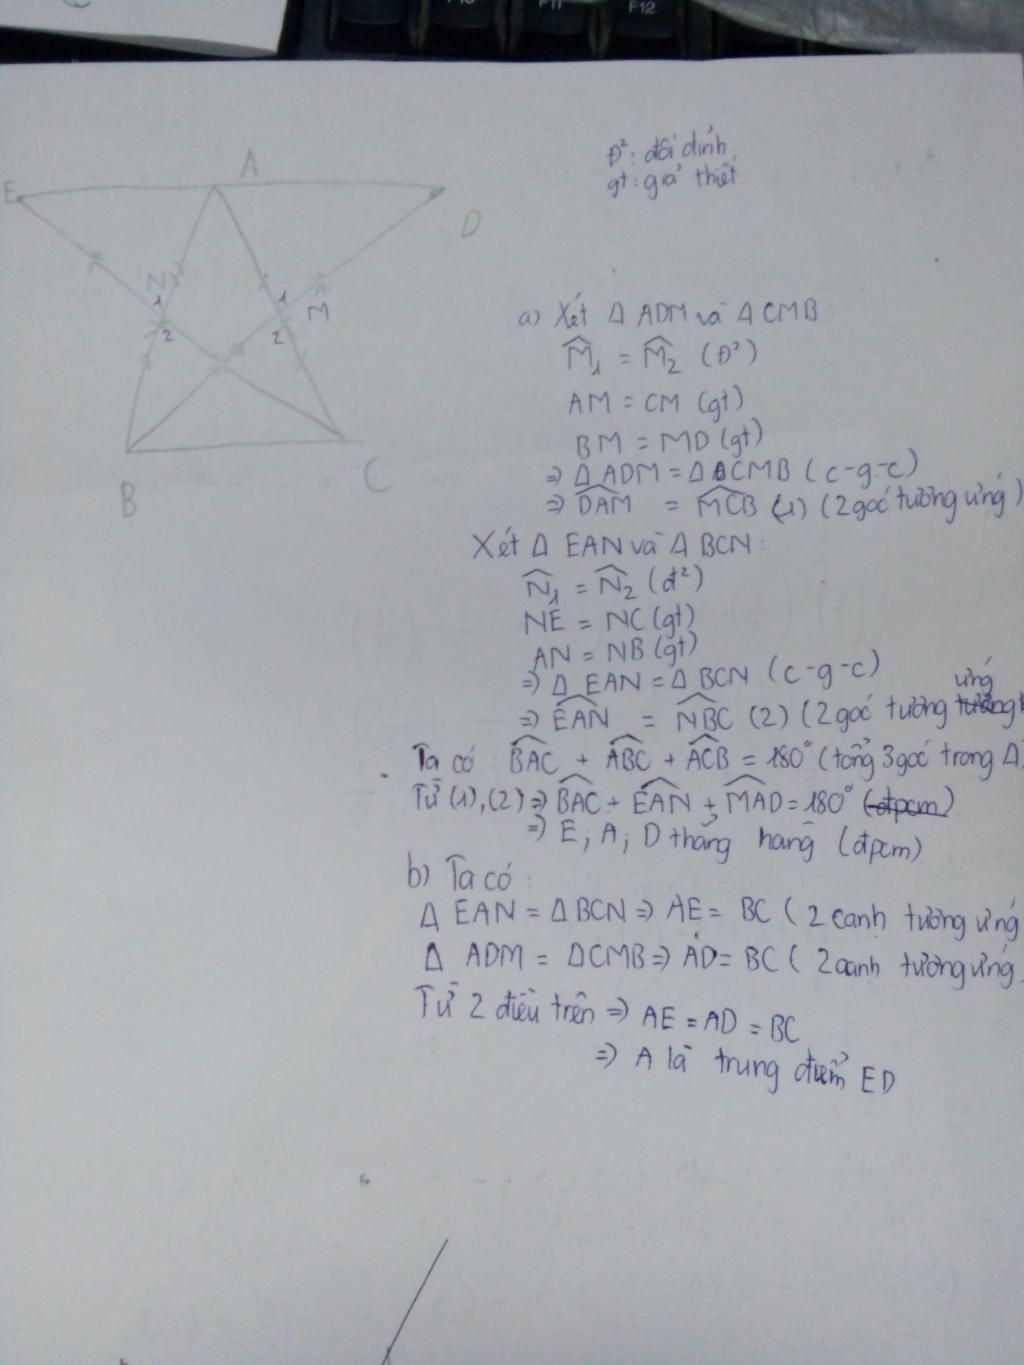 F11
F12
Đ²: đối đỉnh
gt: giả thiết
E
A
D
N
1
2
1
M
2
B
C
a) Xét Δ ADM và Δ CMB:
M̂₁ = M̂₂ (Đ²)
AM = CM (gt)
BM = MD (gt)
=> Δ ADM = Δ CMB (c-g-c)
=> DAM = MCB (1) (2 góc tương ứng)
Xét Δ EAN và Δ BCN:
N̂₁ = N̂₂ (đ²)
NE = NC (gt)
AN = NB (gt)
=> Δ EAN = Δ BCN (c-g-c)
=> EAN = NBC (2) (2 góc tương ứng
Ta có BAC + ABC + ACB = 180° (tổng 3 góc trong Δ)
Từ (1), (2) => BAC + EAN + MAD = 180° (đpcm)
=> E, A, D thẳng hàng (đpcm)
b) Ta có:
Δ EAN = Δ BCN => AE = BC (2 cạnh tương ứng
Δ ADM = Δ CMB => AD = BC (2 cạnh tương ứng)
Từ 2 điều trên => AE = AD = BC
=> A là trung điểm ED